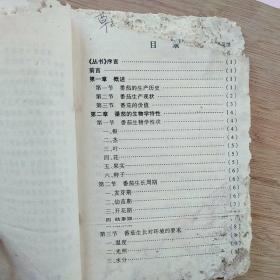 目 录
《丛书》序言 (1)
前言 (1)
第一章 概述 (1)
第一节 番茄的生产历史 (1)
第二节 番茄生产现状 (2)
第三节 番茄的价值 (2)
第二章 番茄的生物学特性 (4)
第一节 番茄生物学性状 (4)
一、根 (4)
二、茎 (4)
三、叶 (5)
四、花 (5)
五、果实 (5)
六、种子 (6)
第二节 番茄生长周期 (6)
一、发芽期 (6)
二、幼苗期 (6)
三、开花期 (6)
四、结果期
第三节 番茄生长对环境的要求
一、温度
二、光照
三、水分